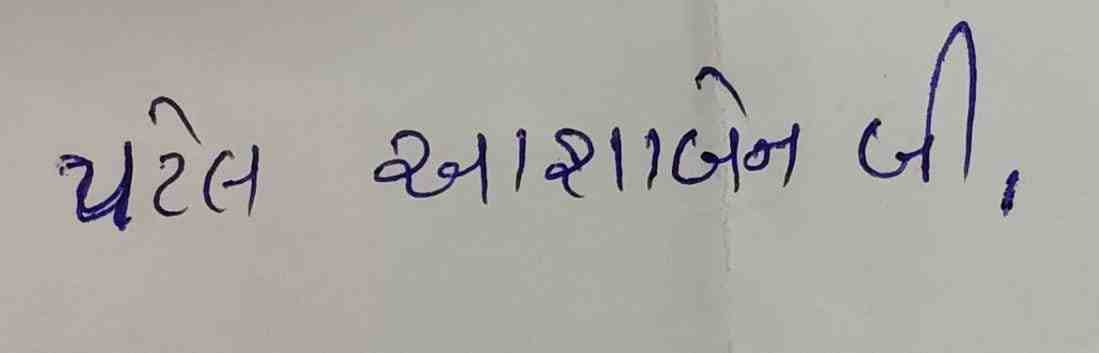 પટેલ આશાબેન બી.